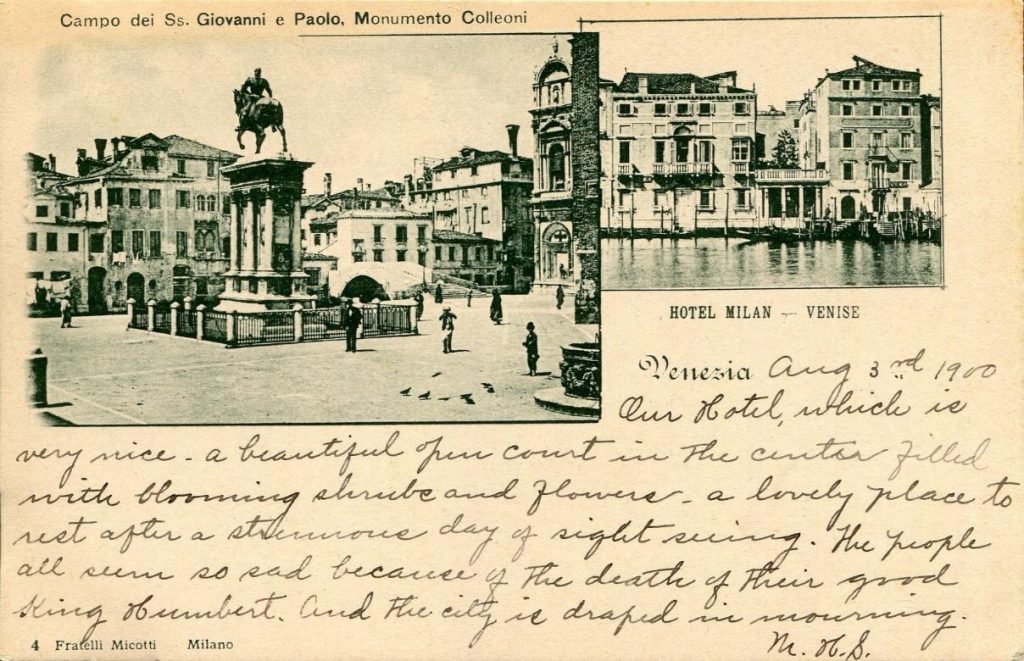 Campo dei Ss. Giovanni e Paolo, Monumento Colleoni
HOTEL MILAN — VENISE
Venezia Aug 3rd 1900
Our Hotel, which is
very nice - a beautiful open court in the center filled
with blooming shrubs and flowers - a lovely place to
rest after a strennous day of sight seeing. The people
all seem so sad because of the death of their good
King Humbert. And the city is draped in mourning.
M. H. S.
4 Fratelli Micotti Milano